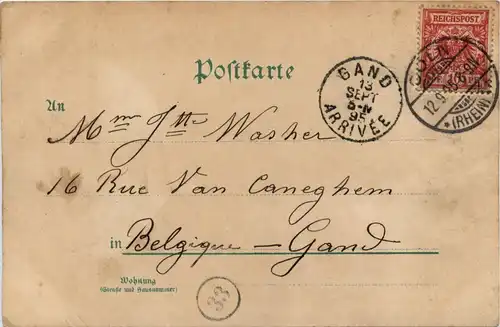 REICHSPOST
Postkarte
GAND
13
SEPT
5-N
95
ARRIVÉE
12.9.95
(RHEIN)
An
Mme Jtte Washer
16 Rue Van Caneghem
in Belgique – Gand
Wohnung
(Straße und Hausnummer)
33